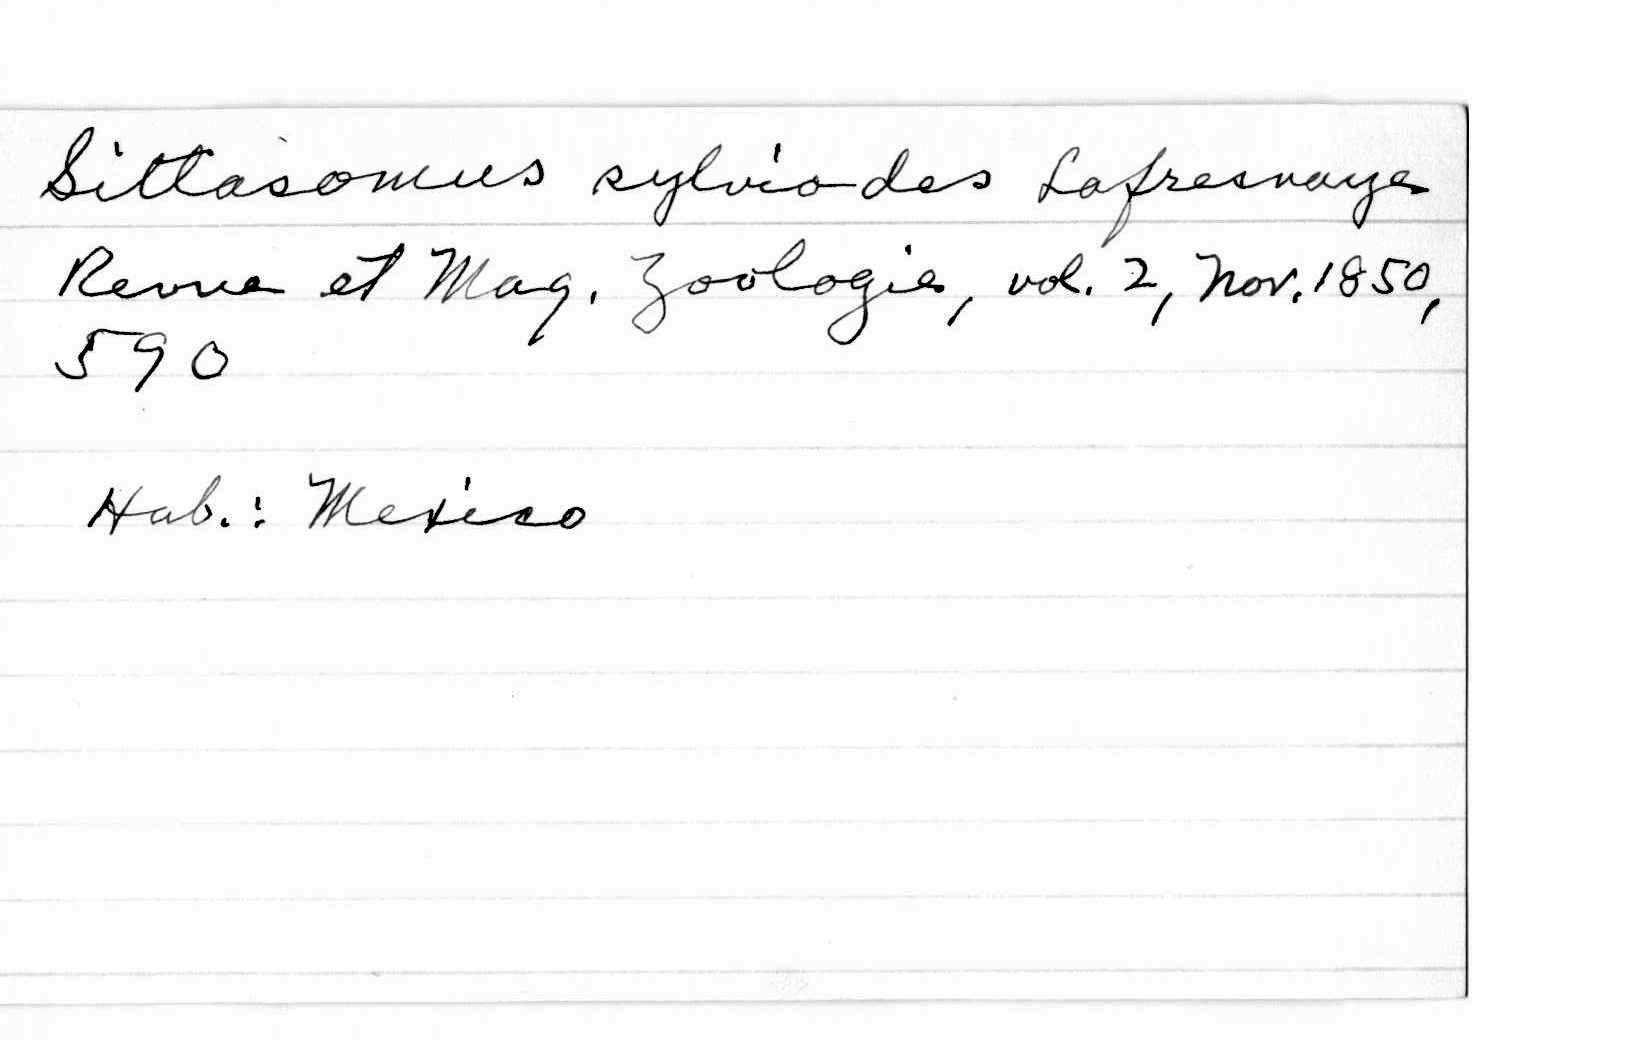 Sittasomus sylviodes Lafresnaye
Revue et Mag. Zoologie, vol. 2, Nov. 1850,
590
Hab.: Mexico